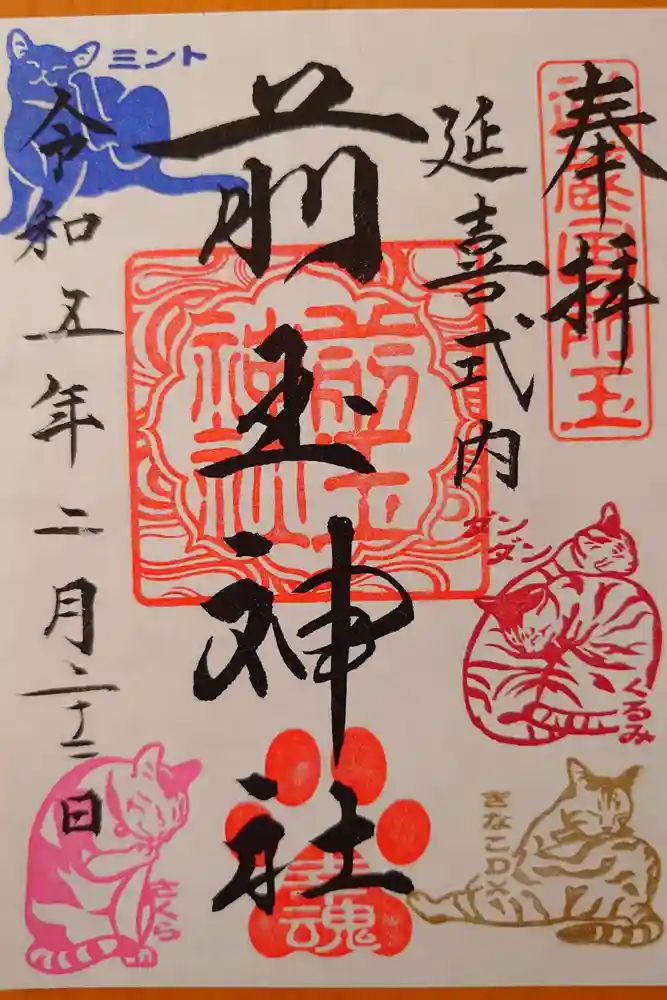 奉拝
武蔵国前玉
延喜式内
前玉神社
前玉
神社
令和五年二月二十二日
ミント
ダンダン
くるみ
きなこDX
さくら
幸魂